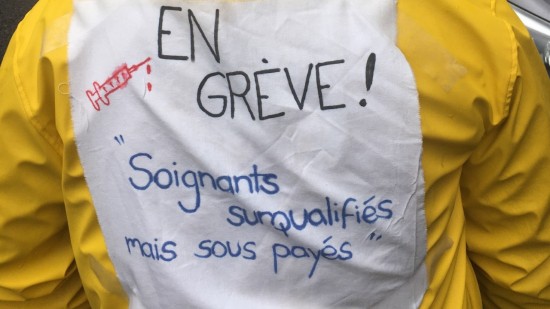 EN
GRÈVE !
"Soignants
surqualifiés
mais sous payés"